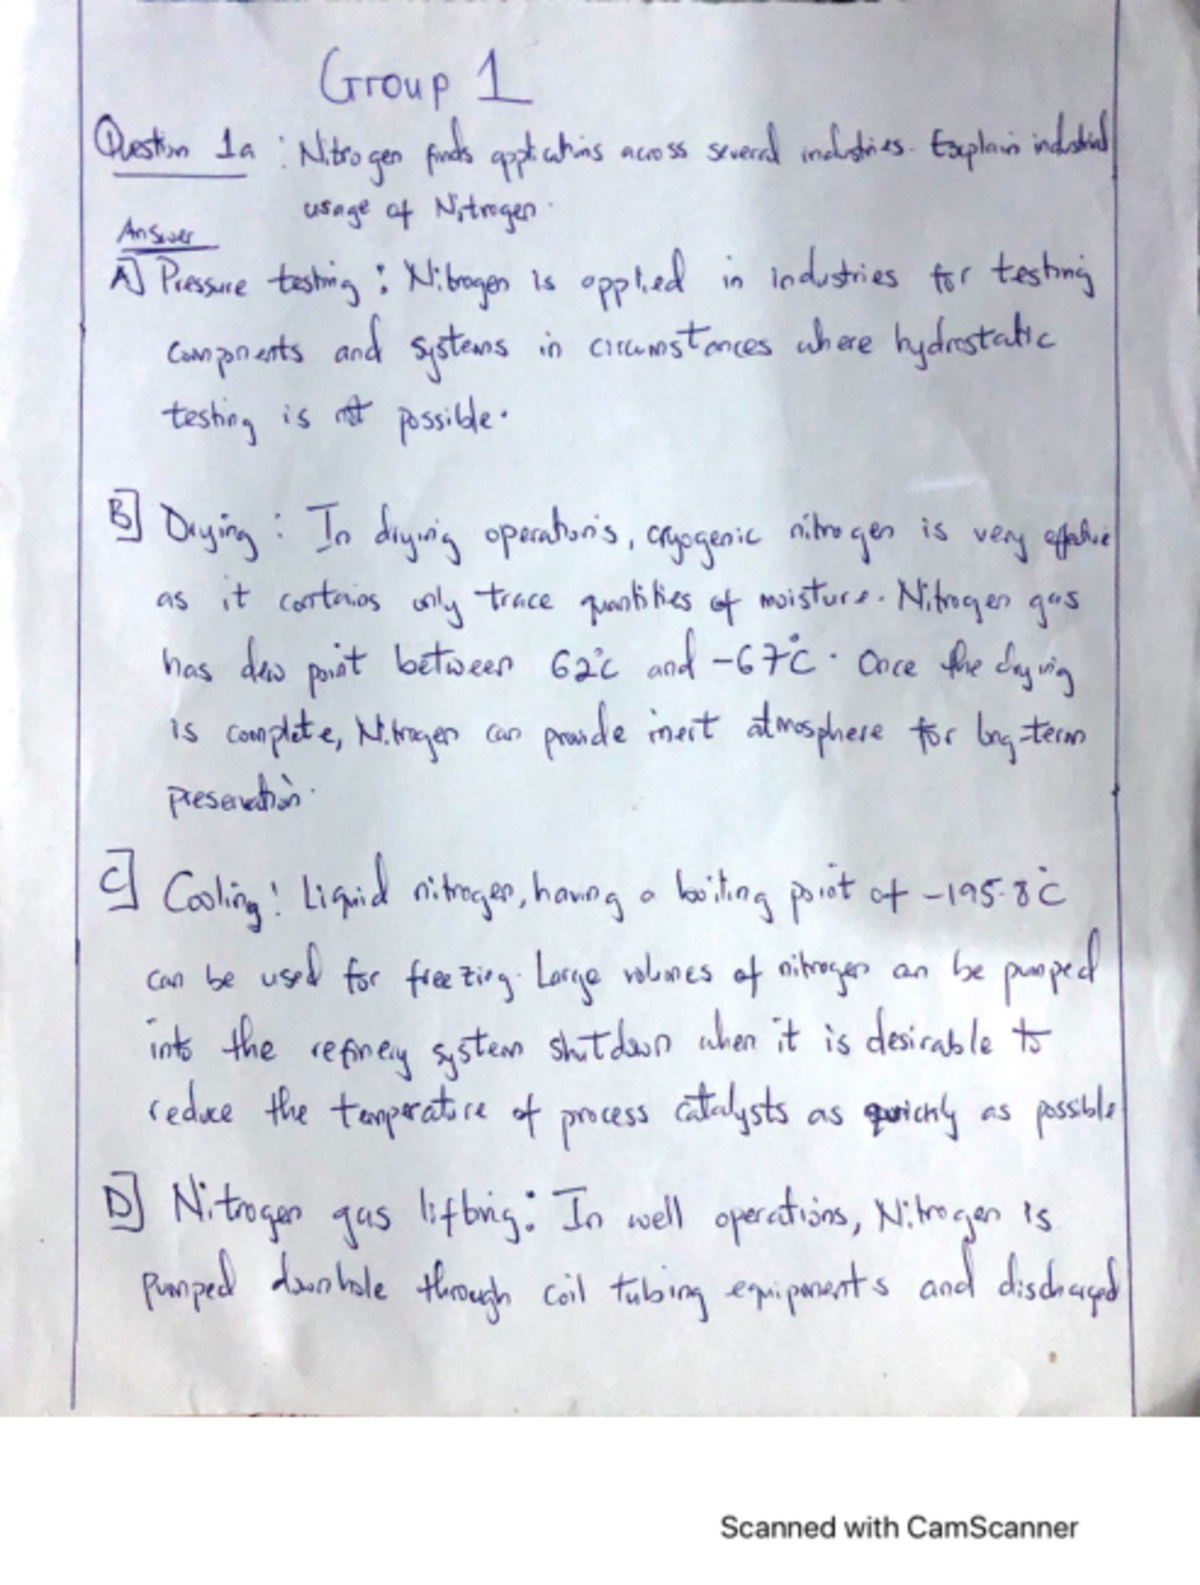 Group 1
Question 1a : Nitrogen finds applications across several industries. Explain industrial
usage of Nitrogen.
Answer
A] Pressure testing : Nitrogen is applied in industries for testing
components and systems in circumstances where hydrostatic
testing is not possible.
B] Drying : In drying operations, cryogenic nitrogen is very effective
as it contains only trace quantities of moisture. Nitrogen gas
has dew point between 62°C and -67°C. Once the drying
is complete, Nitrogen can provide inert atmosphere for long-term
preservation.
C] Cooling : Liquid nitrogen, having a boiling point of -195.8°C
can be used for freezing. Large volumes of nitrogen can be pumped
into the refinery system shutdown when it is desirable to
reduce the temperature of process catalysts as quickly as possible
D] Nitrogen gas lifting : In well operations, Nitrogen is
pumped downhole through coil tubing equipments and discharged
Scanned with CamScanner